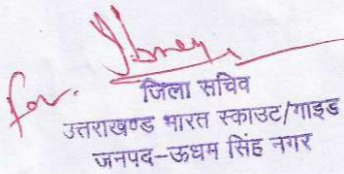 for.
जिला सचिव
उत्तराखण्ड भारत स्काउट/गाइड
जनपद-ऊधम सिंह नगर